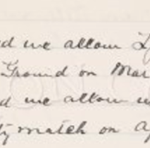 d we allow
Ground on Mar
d we allow
ty match on Ap